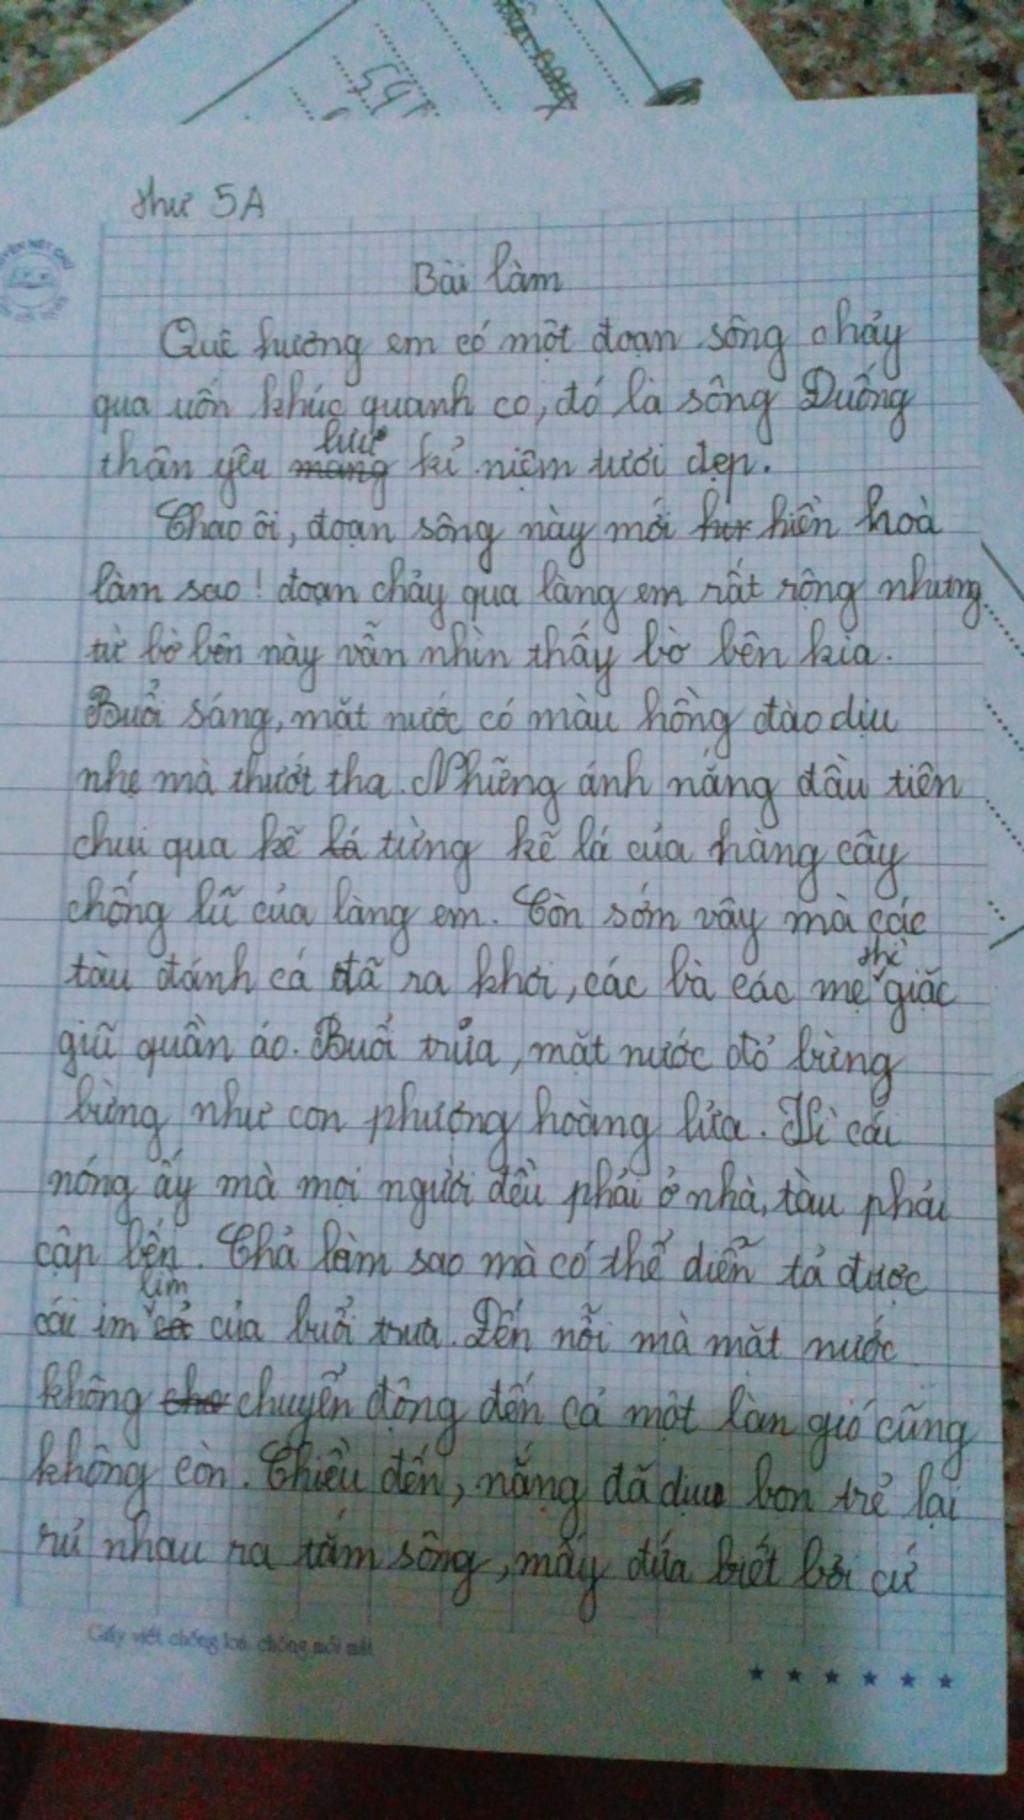 549
thư 5A
Bài làm
Quê hương em có một đoạn sông chảy
qua uốn khúc quanh co, đó là sông Đuống
lưu
thân yêu mang kỉ niệm tươi đẹp.
Chao ôi, đoạn sông này mới hiền hoà
làm sao! đoạn chảy qua làng em rất rộng nhưng
từ bờ bên này vẫn nhìn thấy bờ bên kia.
Buổi sáng, mặt nước có màu hồng đào dịu
nhẹ mà thướt tha. Những ánh nắng đầu tiên
chui qua kẽ lá từng kẽ lá của hàng cây
chống lũ của làng em. Còn sớm vậy mà các
thì
tàu đánh cá đã ra khơi, các bà các mẹ giặc
giũ quần áo. Buổi trưa, mặt nước đỏ bừng
bừng như con phượng hoàng lửa. Vì cái
nóng ấy mà mọi người đều phải ở nhà, tàu phải
cập bến. Chả làm sao mà có thể diễn tả được
lìm
cái im của buổi trưa. Đến nỗi mà mặt nước
không chuyển động đến cả một làn gió cũng
không còn. Chiều đến, nắng đã dịu bọn trẻ lại
rủ nhau ra tắm sông, mấy đứa biết bơi cứ
Giấy viết chống loá, chống mỏi mắt